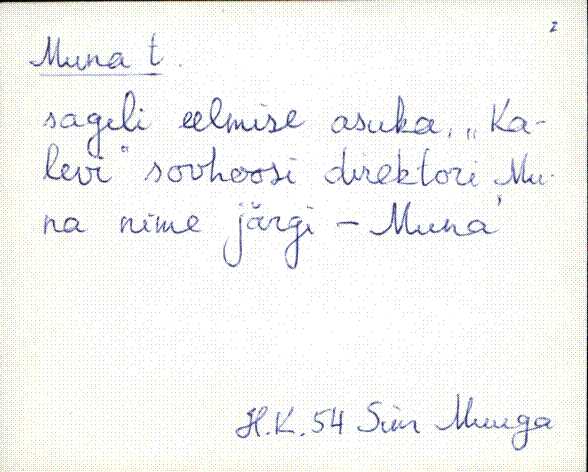 2
Muna t.
sageli eelmise asuka, „Ka-
levi" sovhoosi direktori Mu-
na nime järgi – Muna
H.K. 54 Sim Muuga